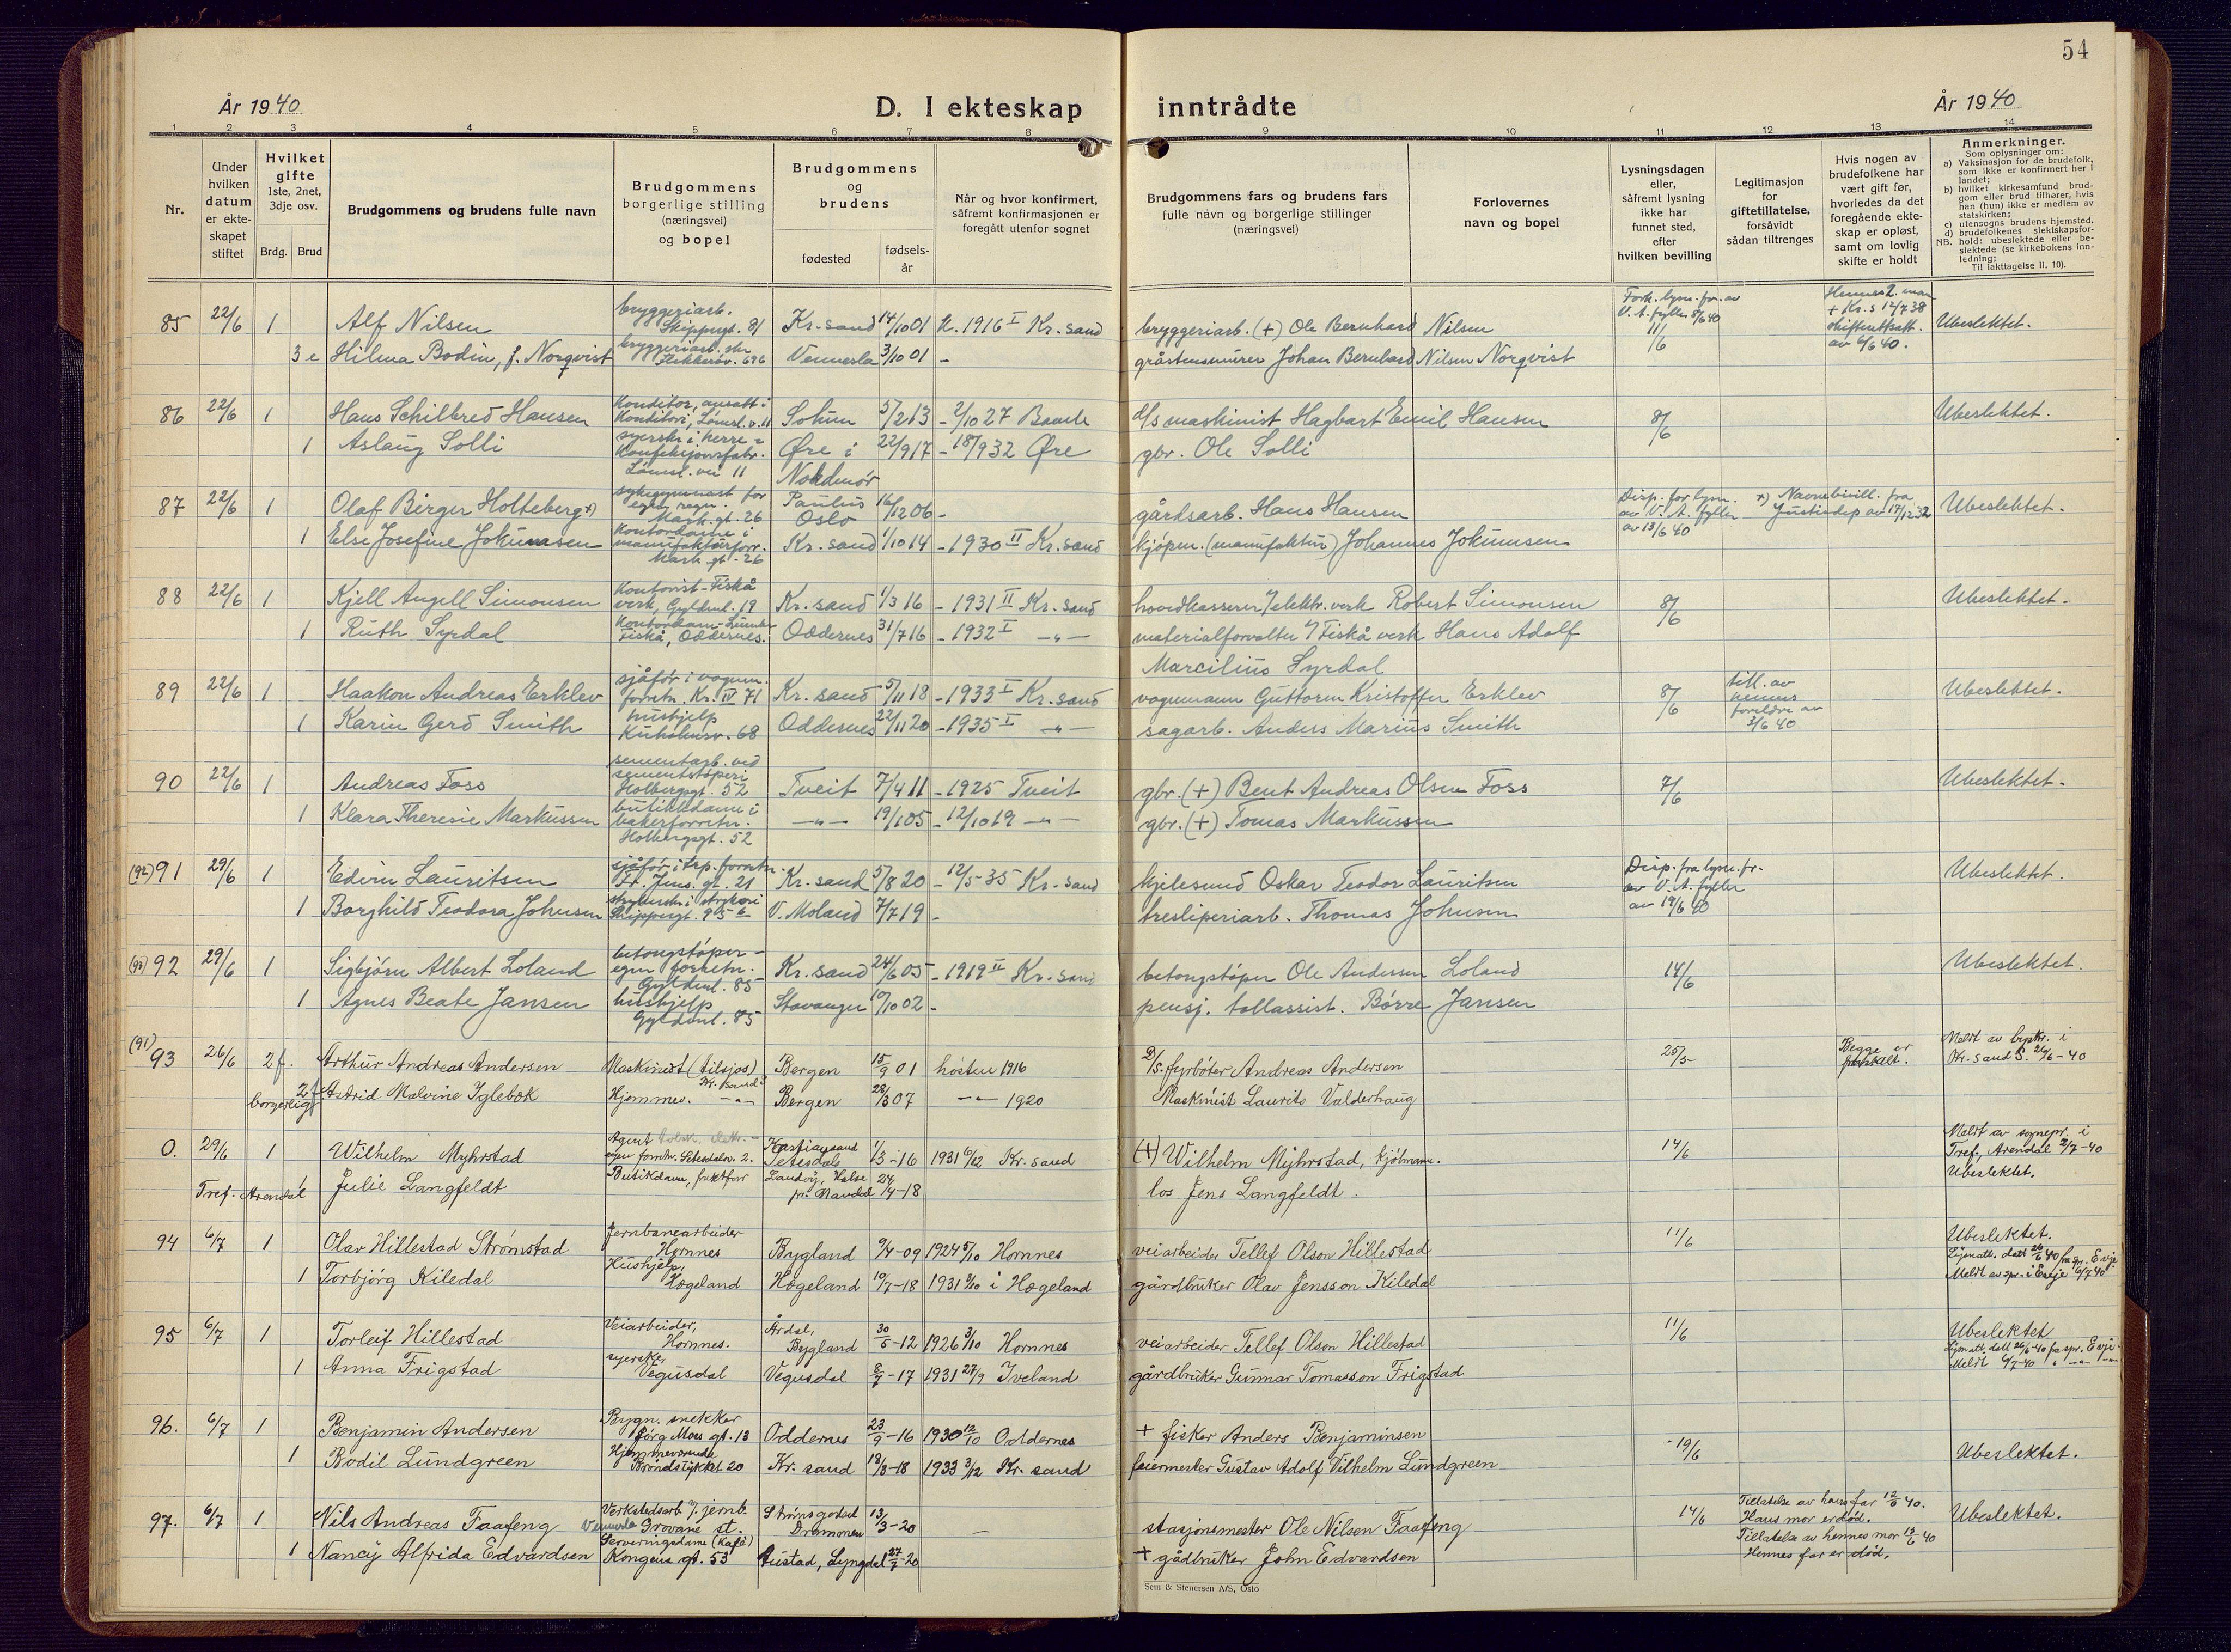 54
År 1940
D. I ekteskap inntrådte
År 1940
1 2 3 4 5 6 7 8 9 10 11 12 13 14
Nr.
Under hvilken datum er ekteskapet stiftet
Hvilket gifte 1ste, 2net, 3dje osv.
Brdg. Brud
Brudgommens og brudens fulle navn
Brudgommens borgerlige stilling (næringsvei) og bopel
Brudgommens og brudens
fødested
fødselsår
Når og hvor konfirmert, såfremt konfirmasjonen er foregått utenfor sognet
Brudgommens fars og brudens fars fulle navn og borgerlige stillinger (næringsvei)
Forlovernes navn og bopel
Lysningsdagen eller, såfremt lysning ikke har funnet sted, efter hvilken bevilling
Legitimasjon for giftetillatelse, forsåvidt sådan tiltrenges
Hvis nogen av brudefolkene har vært gift før, hvorledes da det foregående ekteskap er opløst, samt om lovlig skifte er holdt
Anmerkninger.
Som oplysninger om:
a) Vaksinasjon for de brudefolk, som ikke er konfirmert her i landet;
b) hvilket kirkesamfund brudgom eller brud tilhører, hvis han (hun) ikke er medlem av statskirken;
c) utensogns brudens hjemsted.
d) brudefolkenes slektskapsforhold: ubeslektede eller beslektede (se kirkebokens innledning;
NB.
Til iakttagelse II, 10).
85 22/6 1 Alf Nilsen bryggeriarb. Skippergt. 81 Kr.sand 14/10 01 k. 1916 I Kr. sand bryggeriarb. (+) Ole Bernhard Nilsen 11/6 Ubeslektet.
3 e Hilma Bodin, f. Norqvist Vennesla 3/10 01 - gråstensmurer Johan Bernhard Nilsen Norqvist
86 22/6 1 Hans Schilbred Hansen Konditor, ansatt i Konditori, Lømsl. v. 11 5/2 13 - 2/10 27 Bamle d/s maskinist Hagbart Emil Hansen 8/6 Ubeslektet.
1 Aslaug Solli syerske i herre-konfeksjonsfabr. Lømsl. vei 11 Øre i Nordmør 22/9 17 - 18/9 32 Øre gbr. Ole Solli
87 22/6 1 Olaf Birger Holteberg +) sykegymnast for egen regn. Mark. gt. 26 Paulus Oslo 16/12 06 - gårdsarb. Hans Hansen Disp. for lysn. av V. A. fyller av 13/6 40 +) Navnebevill. fra Justisdep av 17/12 32 Ubeslektet.
1 Else Josefine Jokumsen Kontordame i manufakturforr. Mark. gt. 26 Kr. sand 1/10 14 - 1930 II Kr. sand kjøpm. (manufaktur) Johannes Jokumsen
88 22/6 1 Kjell Angell Simonsen Kontorist - Fiskå verk, Gyldenl. 19 Kr. sand 1/3 16 - 1931 II Kr. sand hovedkasserer v/ elektr. verk Robert Simonsen 8/6 Ubeslektet.
1 Ruth Syrdal Fiskå, Oddernes. Oddernes 31/7 16 - 1932 I -"- materialforvalter v/ Fiskå verk Hans Adolf
Marcilius Syrdal
89 22/6 1 Haakon Andreas Erklev sjåfør i vognm. forretn. Kr. IV 71 Kr. sand 5/11 18 - 1933 I Kr. sand vognmann Guttorm Kristoffer Erklev 8/6 till. av hennes foreldre av 3/6 40 Ubeslektet.
1 Karin Gerd Smith hushjelp Kuholmsv. 68 Oddernes 22/11 20 - 1935 I -"- sagarb. Anders Marius Smith
90 22/6 1 Andreas Foss sementarb. ved sementstøperi Holbergsgt. 52 Tveit 7/4 11 - 1925 Tveit gbr. (+) Bent Andreas Olsen Foss 7/6 Ubeslektet.
1 Klara Theresie Markussen butikkdame i bakerforretn. Holbergsgt. 52 -"- 19/1 05 - 12/10 19 -"- gbr. (+) Tomas Markussen
(92) 91 29/6 1 Edvin Lauritsen sjåfør i trp. forretn. Fr. Jens. gt. 21 Kr. sand 5/8 20 - 12/5 35 Kr. sand Oskar Teodor Lauritsen Disp. fra lysn. fr. av V. A. fyller av 19/6 40 Ubeslektet.
1 Borghild Teodora Johnsen Skippergt. 95 V. Moland 7/7 19 - tresliperiarb. Thomas Johnsen
(93) 92 29/6 1 Sigbjørn Albert Loland betongstøper - egen forretn. Gyldenl. 85 Kr. sand 24/6 05 - 1919 II Kr. sand betongstøper Ole Andersen Loland 14/6 Ubeslektet.
1 Agnes Beate Jansen hushjelp Gyldenl. 85 Stavanger 10/10 02 - pensj. tollassist. Børre Jansen
(91) 93 26/6 2 f. Arthur Andreas Andersen Maskinist (tilsjøs) Kr. sand S Bergen 15/9 01 høsten 1916 D/S. fyrbøter Andreas Andersen 25/5- Begge er fraskilt. Meldt av bypkr. i Kr. sand S. 26/6-40
borgerligt 2 f Astrid Malvine Iglebæk Hjemmev. -"- Bergen 28/3 07 -"- 1920 Maskinist Laurits Valderhaug
0. 29/6 1 Wilhelm Myhrstad Agent egen forretn. Setesdalsv. 2. Kristiansand 1/3-16 1931 6/12 Kr. sand (+) Wilhelm Myhrstad, kjøbmann. 14/6 Meldt av sognepr. i Tref., Arendal 2/7-40 Ubeslektet.
Tref. Arendal 1 Julie Langfeldt Butikdame, fruktforr Landøy, Halse pr. Mandal 24/4-18 los Jens Langfeldt.
94 6/7 1 Olav Hillestad Strømstad Jernbanearbeider Hornnes Bygland 9/4-09 1924 5/10 Hornnes veiarbeider Tellef Olson Hillestad 11/6 Ubeslektet. Lysnatt. datt 26/6 40 fra spr. Evje Meldt av spr. i Evje 6/7 40
1 Torbjørg Kiledal Hushjelp, Hægeland Hægeland 19/7-18 1931 i Hægeland gårdbruker Olav Jensson Kiledal
95 6/7 1 Torleif Hillestad Veiarbeider, Hornnes. Årdal, Bygland 30/5-12 1926 3/10 Hornnes veiarbeider Tellef Olson Hillestad 11/6 Ubeslektet Lysnatt. datt 26/6-40 fra spr. Evje Meldt 6/7-40 " -"-
1 Anna Frigstad syerske, Vegusdal Vegusdal 8/7-17 1931 27/9 Iveland gårdbruker Gunnar Tomasson Frigstad
96. 6/7 1 Benjamin Andersen Bygn. snekker Jørg Moes gt. 13 Oddernes 23/9-16 1930 12/10 Oddernes + fisker Anders Benjaminsen 19/6 Ubeslektet.
1 Bodil Lundgreen Hjemmeværende Brøndstykket 20 Kr. sand 18/3-18 1933 3/12 Kr. sand feiermester Gustav Adolf Vilhelm Lundgreen
97. 6/7 1 Nils Andreas Faafeng Verkstedsarb v/ jernb. Vennesla Grovane st. Strømsgodset Drammen 13/3-20 - stasjonsmester Ole Nilsen Faafeng 14/6 Tillatelse av hans far 12/6 40. Hans mor er død. Ubeslektet.
1 Nancy Alfrida Edvardsen Serveringsdame (Kafé) Kongens gt. 53 Austad, Lyngdal 27/7-20 + gådbruker John Edvardsen Tillatelse av hennes mor 13/6 40 Hennes far er død.
Sem & Stenersen A/S, Oslo